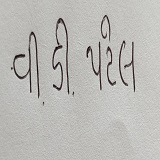 વી. ડી. પટેલ